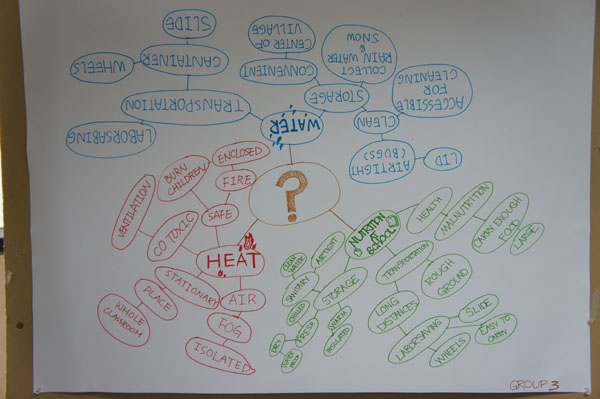 SLIDE
WHEELS
CANTAINER
TRANSPORTATION
LABORSABING
CENTER OF
VILLAGE
CONVENIENT
COLLECT
RAIN WATER
&
SNOW
STORAGE
ACCESSIBLE
FOR
CLEANING
CLEAN
AIRTIGHT
(BUGS)
LID
WATER
?
ENCLOSED
FIRE
BURN
CHILDREN
SAFE
VENTILATION
CO TOXIC
HEAT
STATIONARY
PLACE
WHOLE
CLASSROOM
AIR
FOG
ISOLATED
NUTRITION
AT
SCHOOL
HEALTH
MALNUTRITION
CARRY ENOUGH
FOOD
LARGE
TRANSPORTATION
ROUGH
GROUND
LONG
DISTANCES
LABORSAVING
SLIDE
WHEELS
EASY TO
CARRY
STORAGE
AIRTIGHT
SANITARY
CLEAN
WATER
CHILLED
FRESH
DRY
WATER
PROOF
WARM
INSULATED
GROUP 3